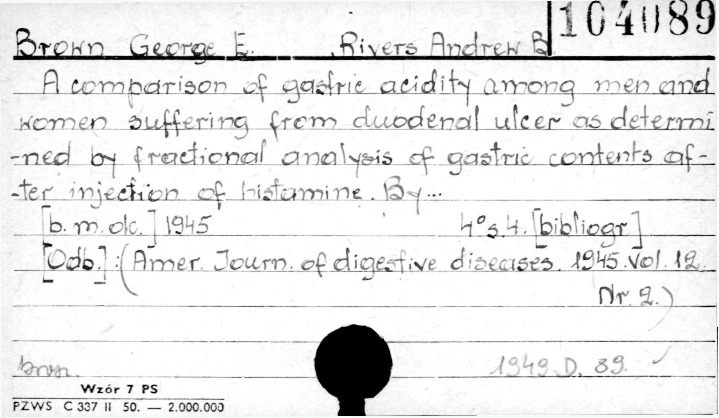 104089
Brown George E. Rivers Andrew B
A comparison of gastric acidity among men and
women suffering from duodenal ulcer as determi
-ned by fractional analysis of gastric contents af-
-ter injection of histamine. By...
[b. m. dr.] 1945 4° s. 4. [bibliogr]
[Odb.]: (Amer. Journ. of digestive diseases. 1945. Vol. 12.
Nr. 2.)
1949. D. 89.
Wzór 7 PS
PZWS C 337 II 50. — 2.000.000